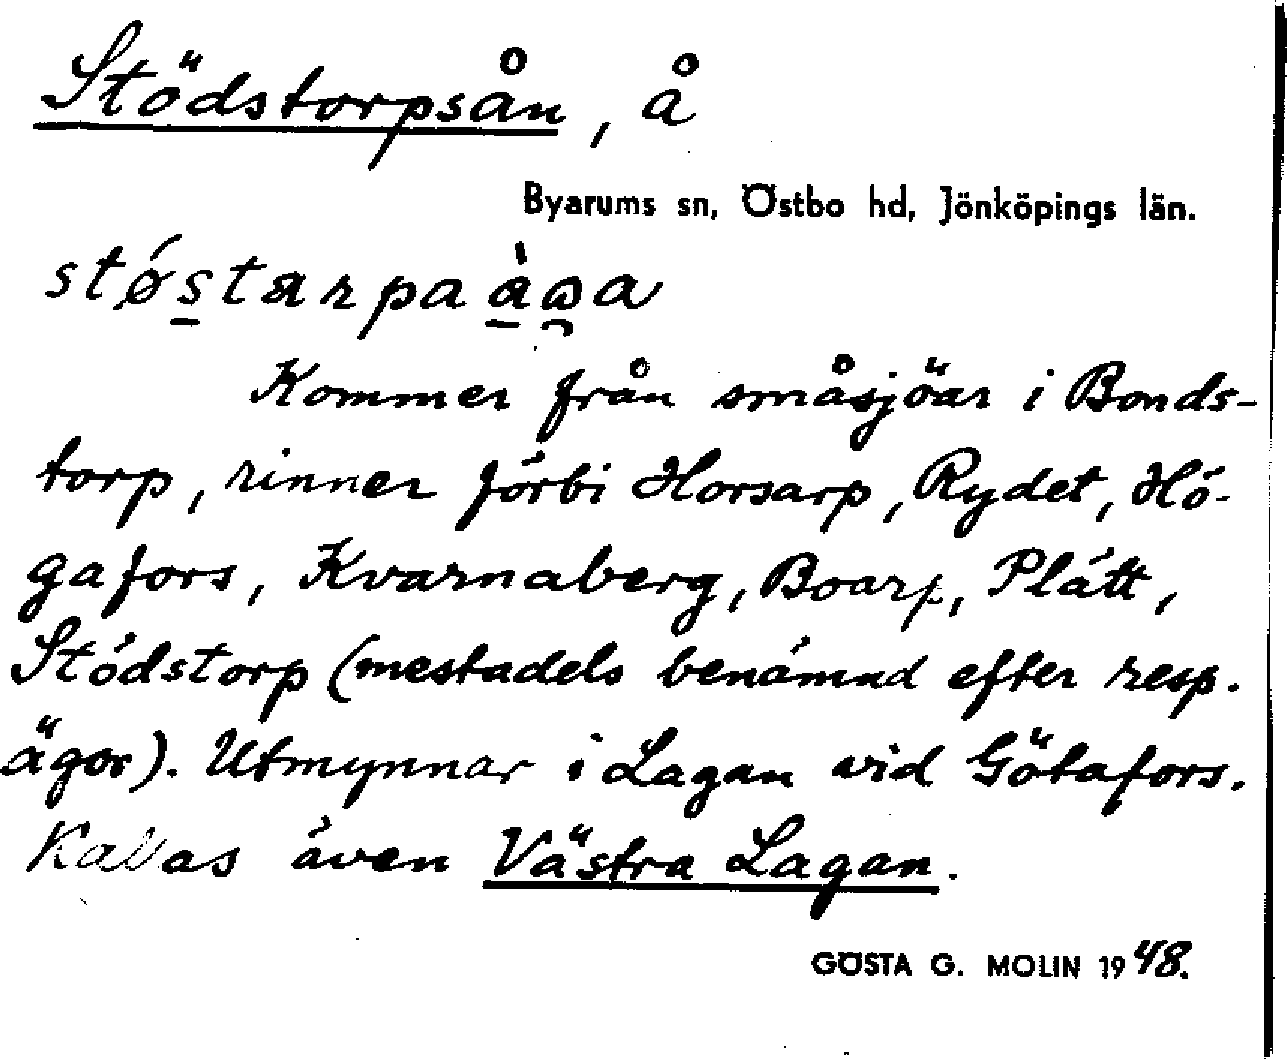 Stödstorpsån, å
Byarums sn, Östbo hd, Jönköpings län.
Kommer från småsjöar i Bonds-
torp, rinner förbi Horsarp, Rydet, Hö-
gafors, Kvarnaberg, Boarp, Plätt,
Stödstorp (mestadels benämnd efter resp.
ägor). Utmynnar i Lagan vid Götafors.
Kallas även Västra Lagan.
GÖSTA G. MOLIN 1948.